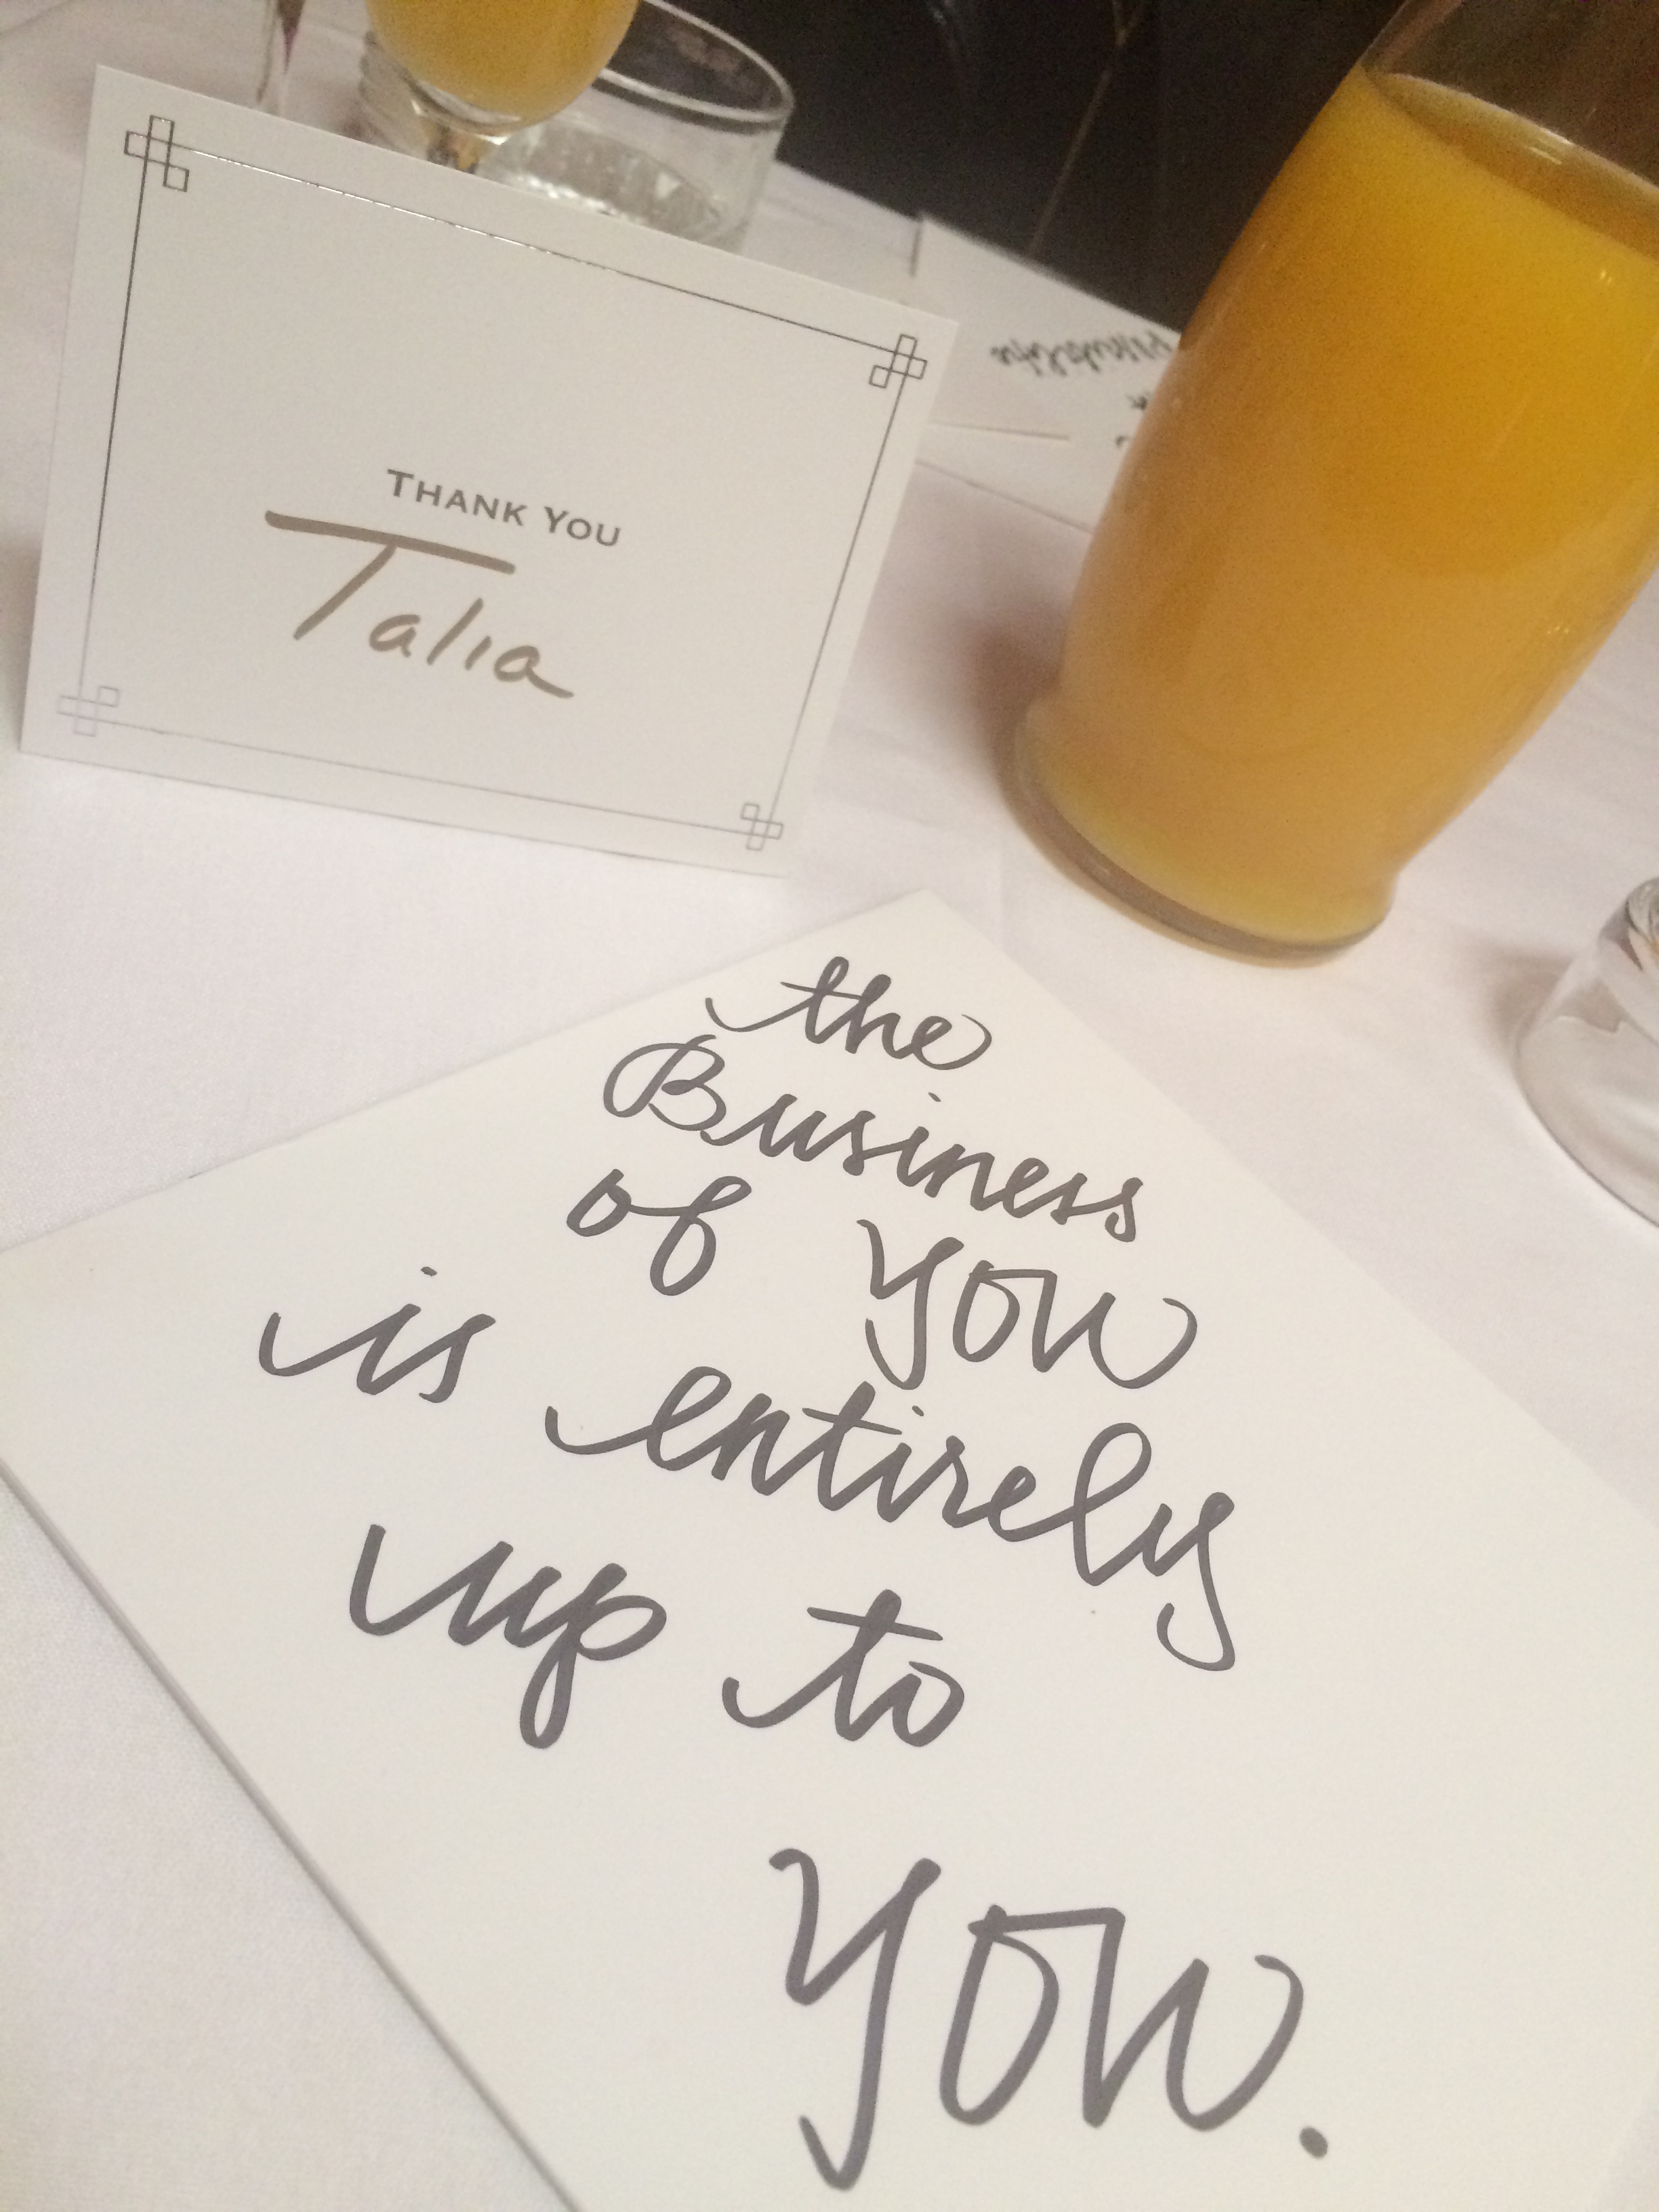 THANK YOU
Talia
the
Business
of you
is entirely
up to
you.